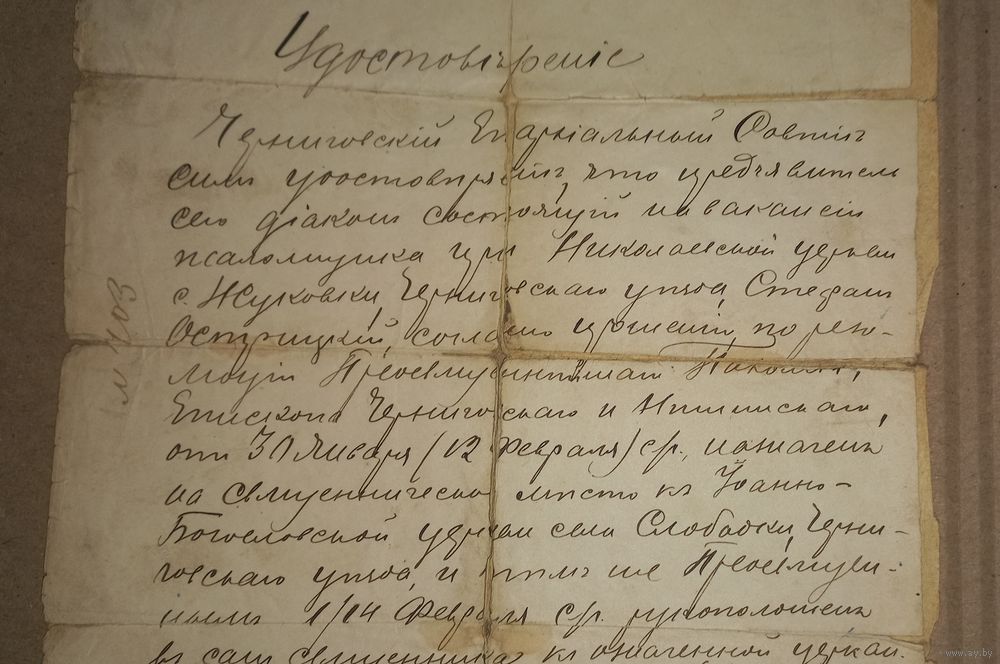 Удостовѣреніе
Черниговскій Епархіальный Совѣтъ
симъ удостовѣряетъ, что предъявитель
сего діаконъ состоящій на вакансіи
псаломщика при Николаевской церкви
с. Жуковки, Черниговскаго уѣзда, Стефанъ
Острицкій, согласно прошенію, по резо-
люціи Преосвященнѣйшаго Пахомія,
Епископа Черниговскаго и Нѣжинскаго,
отъ 30 Января /12 Февраля/ с/г., назначенъ
на священническое мѣсто къ Іоанно-
Богословской церкви села Слободки, Черни-
говскаго уѣзда, и тѣмъ же Преосвящен-
нымъ 1/14 Февраля с/г. рукоположенъ
въ санъ священника къ означенной церкви.
www.ay.by